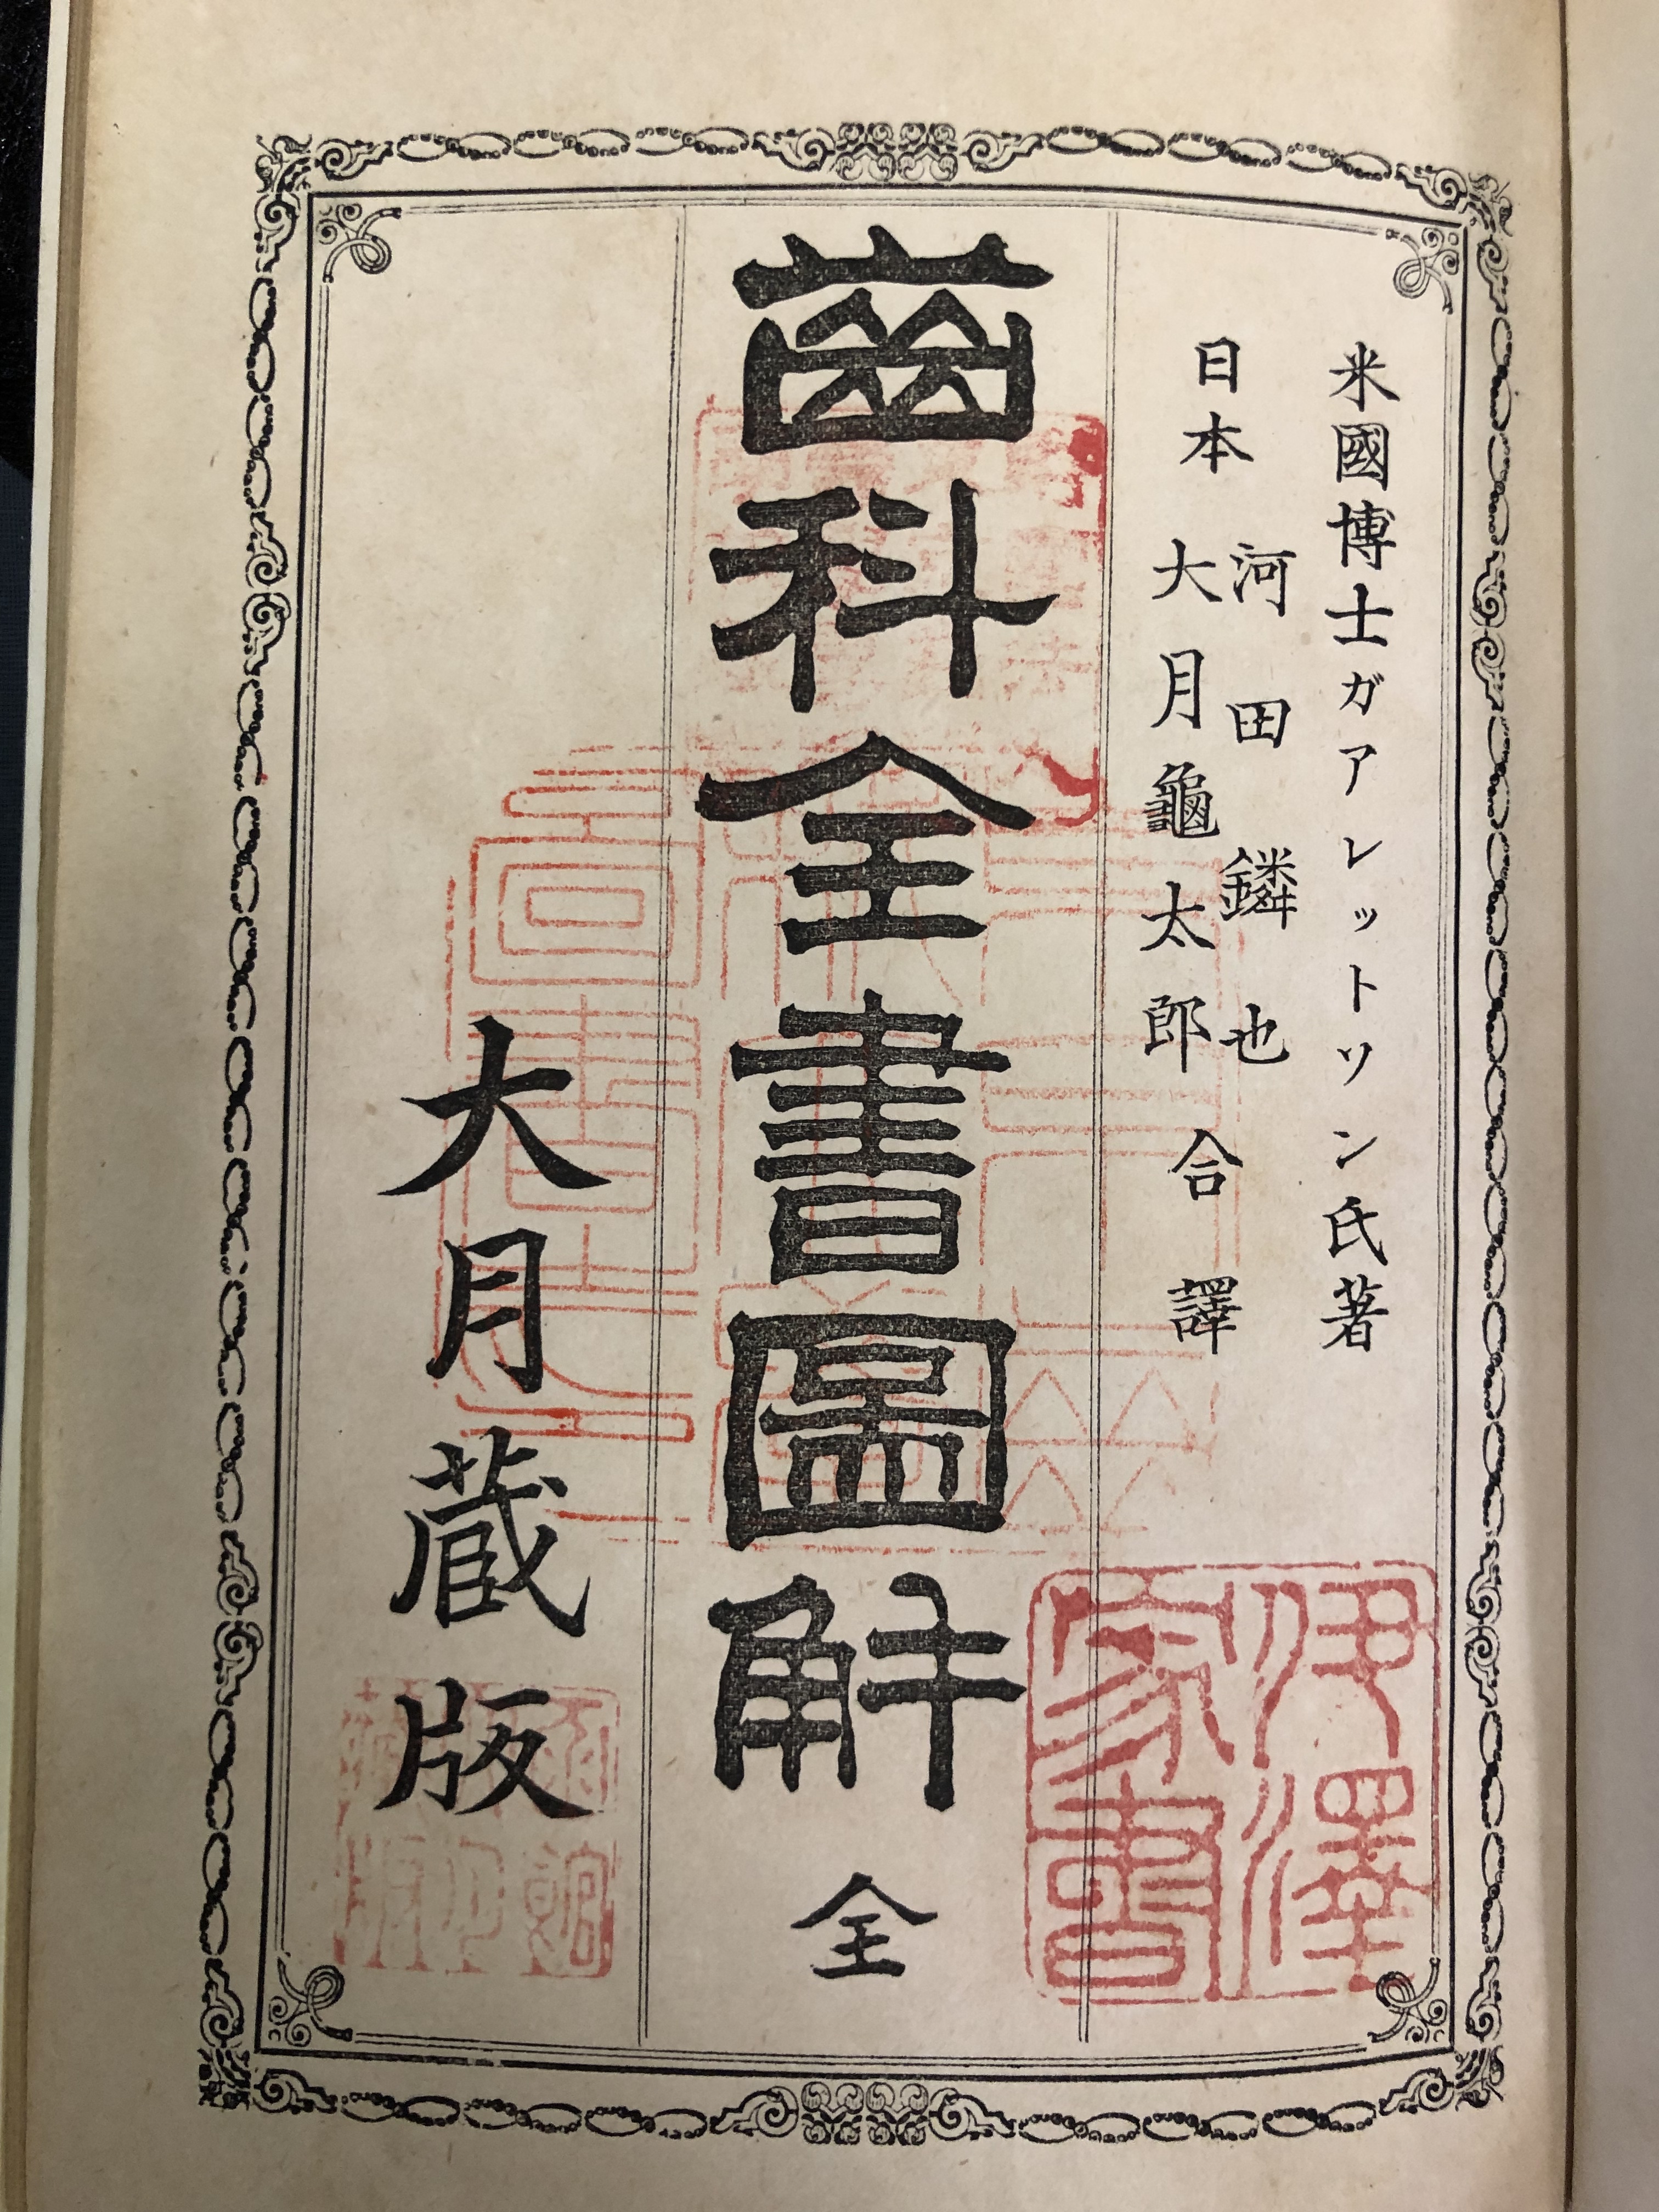 米國博士ガアレットソン氏著
日本
河田鏻也
大月龜太郎
合譯
齒科全書圖解 全
大月蔵版
伊澤
家書